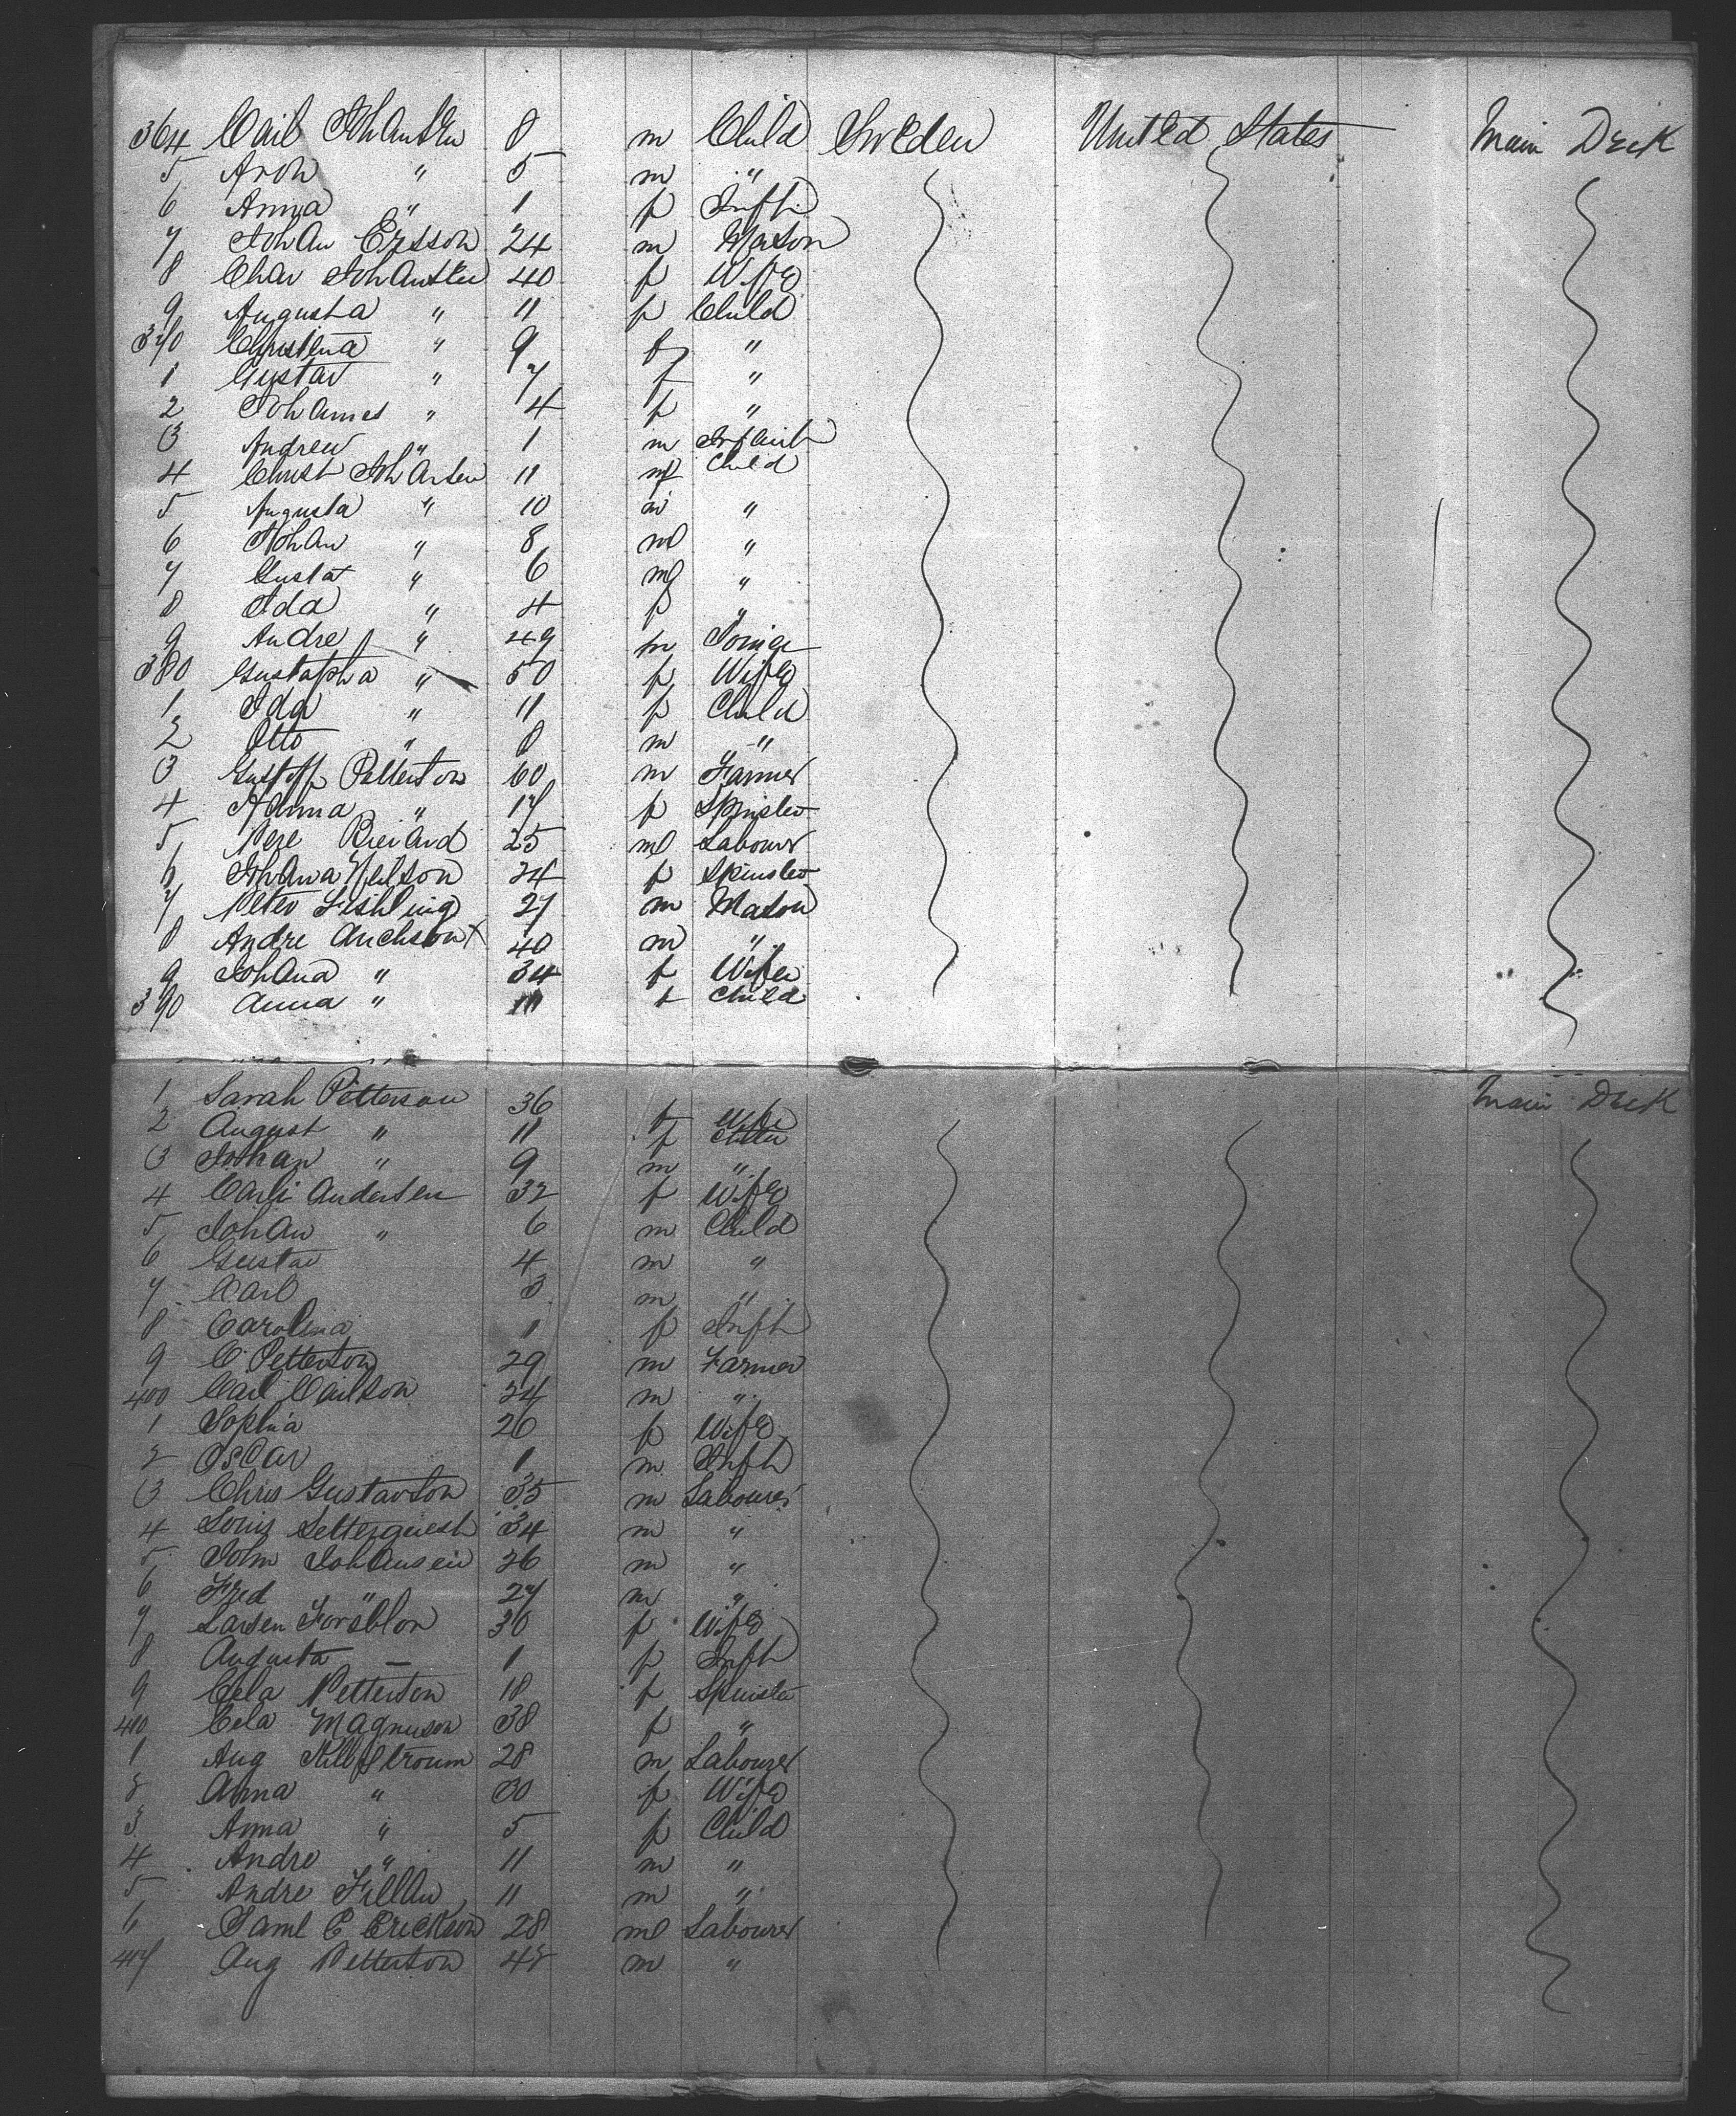 364 Carl Johansen 8 m Child Sweden United States Main Deck
5 Aron " 5 m "
6 Anna " 1 f Inft
7 Johan Ersson 24 m Mason
8 Char Johansen 40 f Wife
9 Augusta " 11 f Child
370 Christena " 9 f "
1 Gustav " 7 f "
2 Johannes " 4 f "
3 Andrew " 1 m Infant
4 Christ Johansen 11 Child
5 Augusta " 10 m "
6 Johan " 8 m "
7 Gustaf " 6 m "
8 Ida " 4 f "
9 Andre " 49 m Joiner
380 Gustapha " 50 f Wife
1 Ida " 11 f Child
2 Otto " 8 m "
3 Gustoff Petterson 60 m Farmer
4 Hanna " 17 f Spinster
5 25 m Labourer
6 Johana Nelson 24 f Spinster
7 Peter 27 m Mason
8 Andre 40 m "
9 Johana " 34 f Wife
390 Anna " 11 f Child
1 Sarah Petterson 36 f Wife Main Deck
2 August " 11 f Child
3 Johan " 9 m "
4 Andersen 32 f Wife
5 Johan " 6 m Child
6 Gustav 4 m "
7 Carl 3 m "
8 Carolina 1 f Inft
9 C Petterson 29 m Farmer
400 Carl Carlson 24 m "
1 Sophia 26 f Wife
2 Oscar 1 m Inft
3 Chris Gustavson 35 m Labourer
4 Louis 34 m "
5 John Johansen 26 m "
6 Fred " 27 m "
7 Larsen Forsblon 30 f Wife
8 Augusta — 1 f Inft
9 Cela Petterson 18 f Spinster
410 Cela Magnuson 38 f "
1 Aug 28 m Labourer
2 Anna " 30 f Wife
3 Anna " 5 f Child
4 Andre " 11 m "
5 Andre Fillan 11 m "
6 Saml C Erickson 28 m Labourer
417 Aug Petterson 42 m "